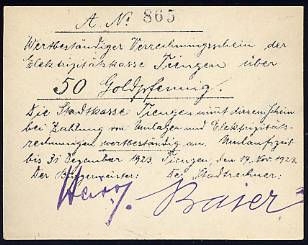 A. No 865
Wertbeständiger Verrechnungsschein der
Elektrizitätskasse Tiengen über
50 Goldpfennig.
Die Stadtkasse Tiengen nimmt diesen Schein
bei Zahlung von Umlagen und Elektrizitäts-
rechnungen wertbeständig an. Umlaufzeit
bis 31. Dezember 1923. Tiengen, den 19. Nov. 1923.
Der Bürgermeister: Der Stadtrechner:
Baier